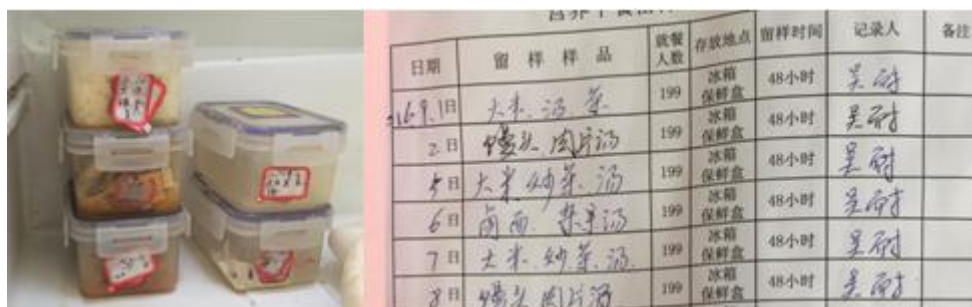 日期 留样样品 就餐人数 存放地点 留样时间 记录人 备注
16.9.1日 大米、汤、菜 199 冰箱保鲜盒 48小时 吴耐
2日 馒头、肉片汤 199 冰箱保鲜盒 48小时 吴耐
5日 大米、炒菜、汤 199 冰箱保鲜盒 48小时 吴耐
6日 卤面、汤 199 冰箱保鲜盒 48小时 吴耐
7日 大米、炒菜、汤 199 冰箱保鲜盒 48小时 吴耐
8日 馒头、肉片汤 199 冰箱保鲜盒 48小时 吴耐